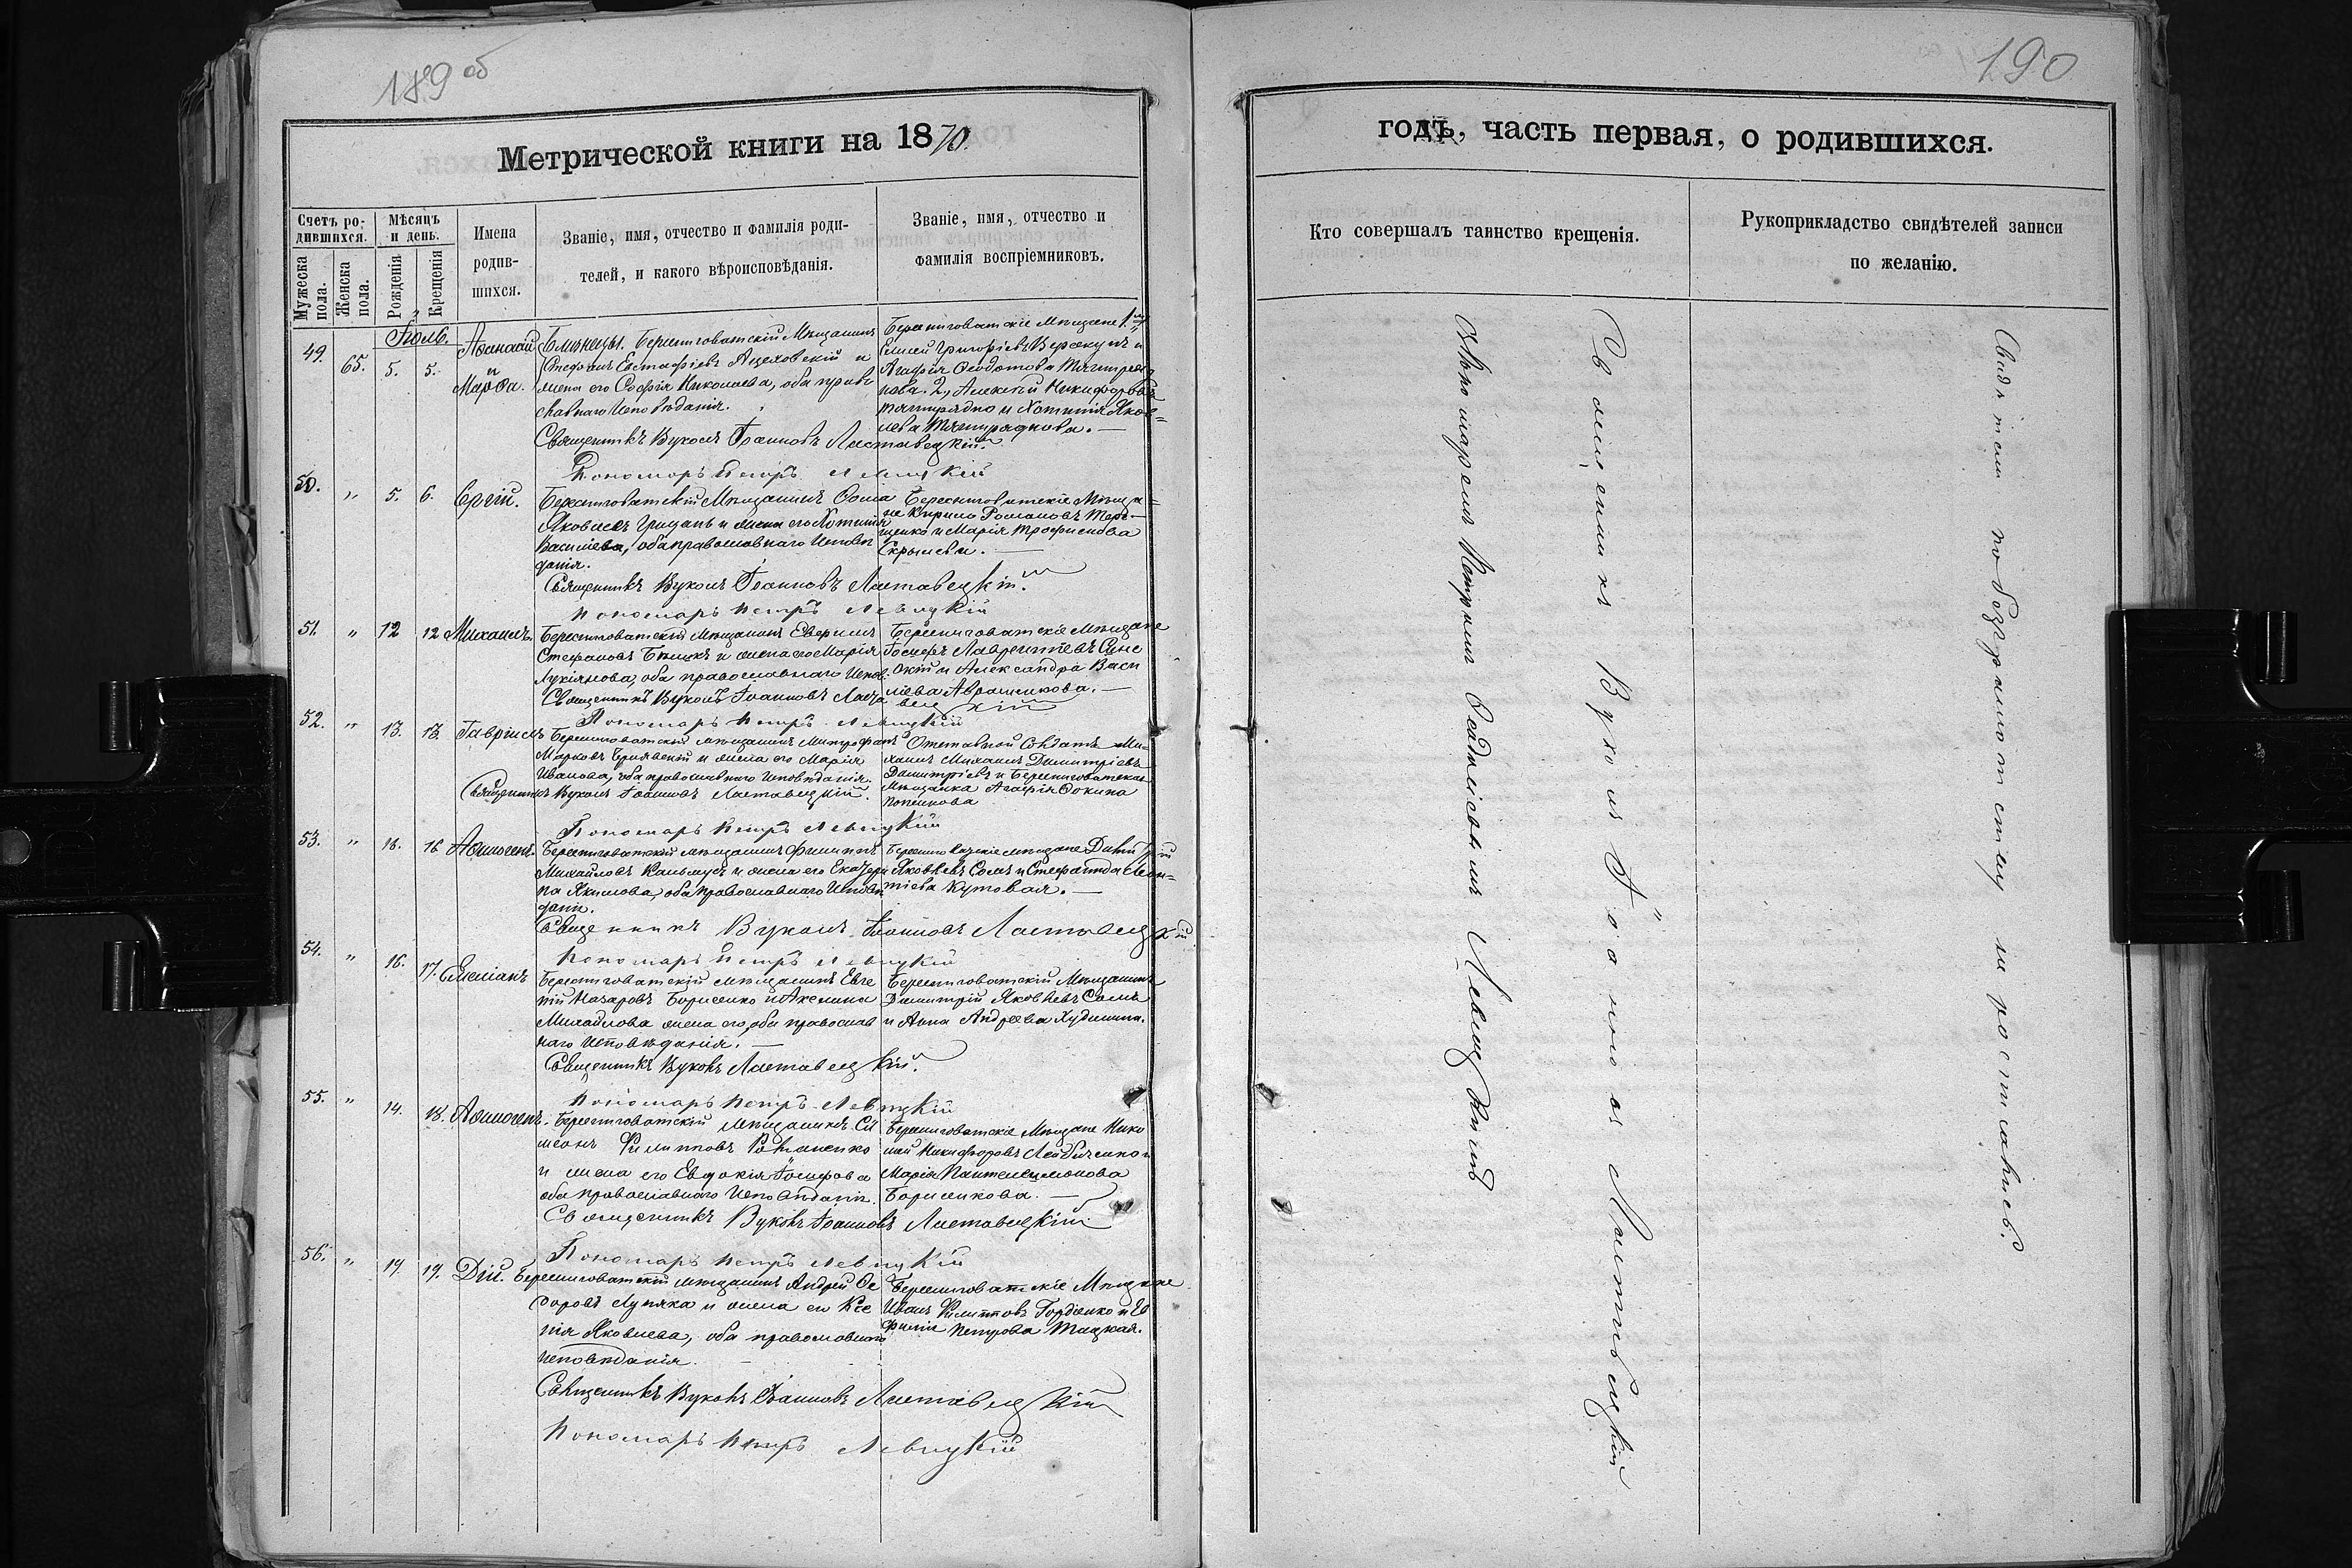 189 об
Метрической книги на 1870
Счетъ ро-
дившихся.
Мѣсяцъ
и день.
Имена
родив-
шихся.
Званіе, имя, отчество и фамилія роди-
телей, и какого вѣроисповѣданія.
Званіе, имя, отчество и
фамилія воспріемниковъ.
Мужеска
пола.
Женска
пола.
Рожденія
Крещенія
Іюль.
49.
65.
5.
5.
Афанасій
и
Марфа.
Близнецы. Берестоватскій Мѣщанинъ
Стефанъ Евстафіевъ и
жена его Софія Николаева, оба право
славнаго Исповѣданія.
Священникъ Вуколъ Іоанновъ Ластавецкій.
Пономарь Петръ Левицкій
Берестоватскіе Мѣщане 1,
Елисей Григоріевъ и
Агафія Федотова
2, Алексѣй Никифоровъ
и Хотинія Яков=
лева
50.
"
5.
6.
Сергій.
Берестоватскій Мѣщанинъ Фома
Яковлевъ Грицанъ и жена его Хотинія
Васильева, оба православнаго Исповѣ
данія.
Священникъ Вуколъ Іоанновъ Ластавецкій.
Пономарь Петръ Левицкій
Берестоватскіе Мѣща=
не Кирило Романовъ Тере-
щенко и Марія Трофимова
51.
"
12
12
Михаилъ.
Берестоватскій Мѣщанинъ
Стефановъ и жена его Марія
Лукіянова, оба православнаго Испов.
Священникъ Вуколъ Іоанновъ Ластавецкій
Пономарь Петръ Левицкій
Берестоватскіе Мѣщане
Іосифъ Лаврентіевъ
и Александра Васи
ліева Аврашикова.
52.
"
13.
13.
Гавріилъ
Берестоватскій мѣщанинъ Митрофанъ
Марковъ и жена его Марія
Иванова, оба православнаго Исповѣданія.
Священникъ Вуколъ Іоанновъ Ластавецкій.
Пономарь Петръ Левицкій
Отставной Солдатъ Ми=
хаилъ Димитріевъ
и Берестоватская
Мѣщанка Агафія Фокина
53.
"
16.
16
Афиногенъ.
Берестоватскій мѣщанинъ Филиппъ
Михайловъ и жена его Екатери
на Якимова, оба православнаго Исповѣ
данія.
Священникъ Вуколъ Іоанновъ Ластавецкій
Пономарь Петръ Левицкій
мѣщане Димитрій
Яковлевъ Сомъ и Стефанида Леон=
тіева Кутовая.
54.
"
16.
17.
Емеліанъ
Берестоватскій мѣщанинъ Евге
ній Назаровъ Борисенко и Аксинія
Михайлова жена его, оба православ
наго Исповѣданія.
Священникъ Вуколъ Ластавецкій.
Пономарь Петръ Левицкій
Берестоватскій Мѣщанинъ
Димитрій Яковлевъ Сомъ
и Анна Андреева
55.
"
14.
18.
Афиногенъ.
Берестоватскій Мѣщанинъ Си
меонъ Филипповъ Романенко
и жена его Евдокія Іосифова
оба православнаго Исповѣданія.
Священникъ Вуколъ Іоанновъ Ластавецкій
Пономарь Петръ Левицкій
Берестоватскіе Мѣщане Нико
лай Никифоровъ и
Марія Пантелеимонова
Борисикова.
56.
"
19.
19.
Дій.
Берестоватскій мѣщанинъ Андрей Ѳе
доровъ Лупяка и жена его Ксе
нія Яковлева, оба православнаго
исповѣданія.
Священникъ Вуколъ Іоанновъ Ластавецкій
Пономарь Петръ Левицкій
Берестоватскіе Мѣщане
Иванъ Филипповъ Гордіенко и Ев
фимія Петрова
190
годъ, часть первая, о родившихся.
Кто совершалъ таинство крещенія.
Рукоприкладство свидѣтелей записи
по желанію.
Священникъ Вуколъ Іоанновъ Ластавецкій
съ пономаремъ Петромъ Левицкимъ
Свидѣтели по безграмотству не росписались.